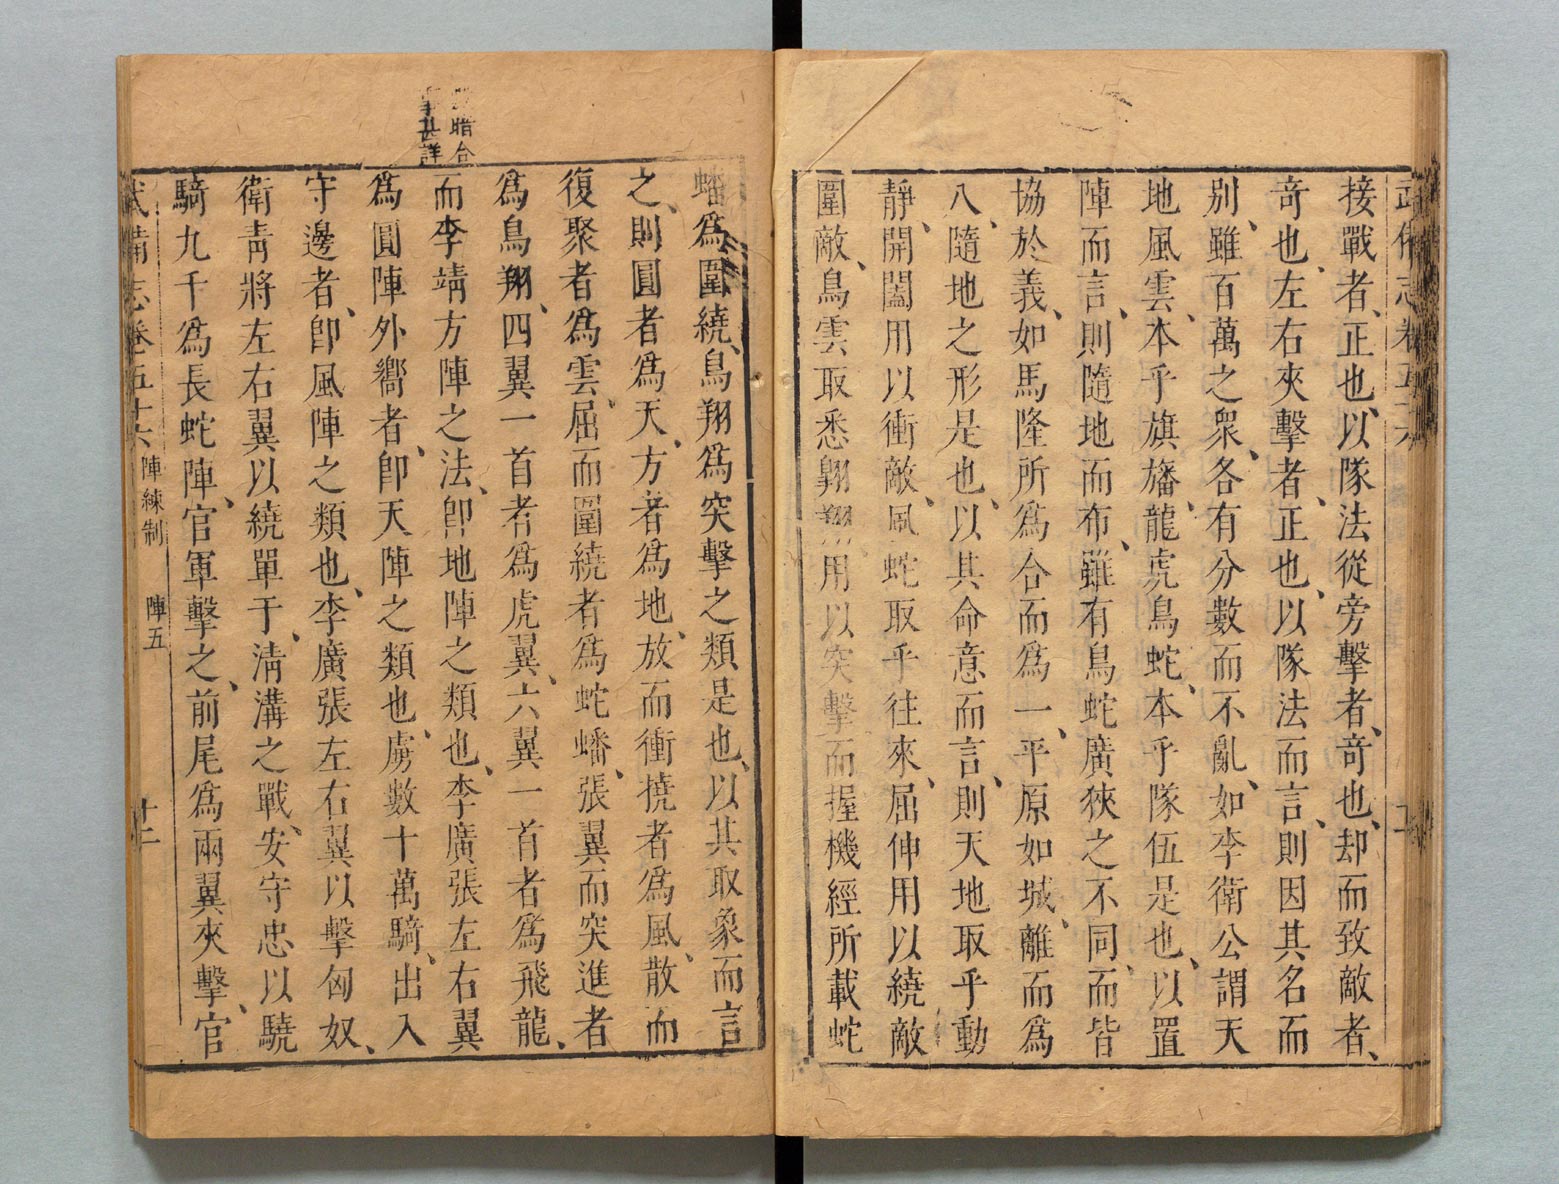 接戰者、正也、以隊法從旁擊者、竒也、却而致敵者、
竒也、左右夾擊者、正也、以隊法而言、則因其名而
别、雖百萬之衆、各有分數而不亂、如李衛公謂天
地風雲、本乎旗旛、龍虎鳥蛇、本乎隊伍是也、以置
陣而言、則隨地而布、雖有鳥蛇廣狹之不同、而皆
協於義、如馬隆所爲合而爲一、平原如城、離而爲
八、隨地之形是也、以其命意而言、則天地取乎動
靜、開闔用以衝敵、風蛇取乎往來、屈伸用以繞敵
圍敵、鳥雲取悉翺翔用以突擊而握機經所載蛇
蟠爲圍繞、鳥翔爲突擊之類是也、以其取象而言
之、則圓者爲天、方者爲地、放而衝撓者爲風、散而
復聚者爲雲、屈而圍繞者爲蛇蟠、張翼而突進者
爲鳥翔、四翼一首者爲虎翼、六翼一首者爲飛龍、
而李靖方陣之法、卽地陣之類也、李廣張左右翼
爲圓陣外嚮者、卽天陣之類也、虜數十萬騎、出入
守邊者、卽風陣之類也、李廣張左右翼以擊匈奴、
衛靑將左右翼以繞單于、淸溝之戰、安守忠以驍
騎九千爲長蛇陣、官軍擊之、前尾爲兩翼夾擊、官
武備志卷五十六 陣練制 陣五 十二